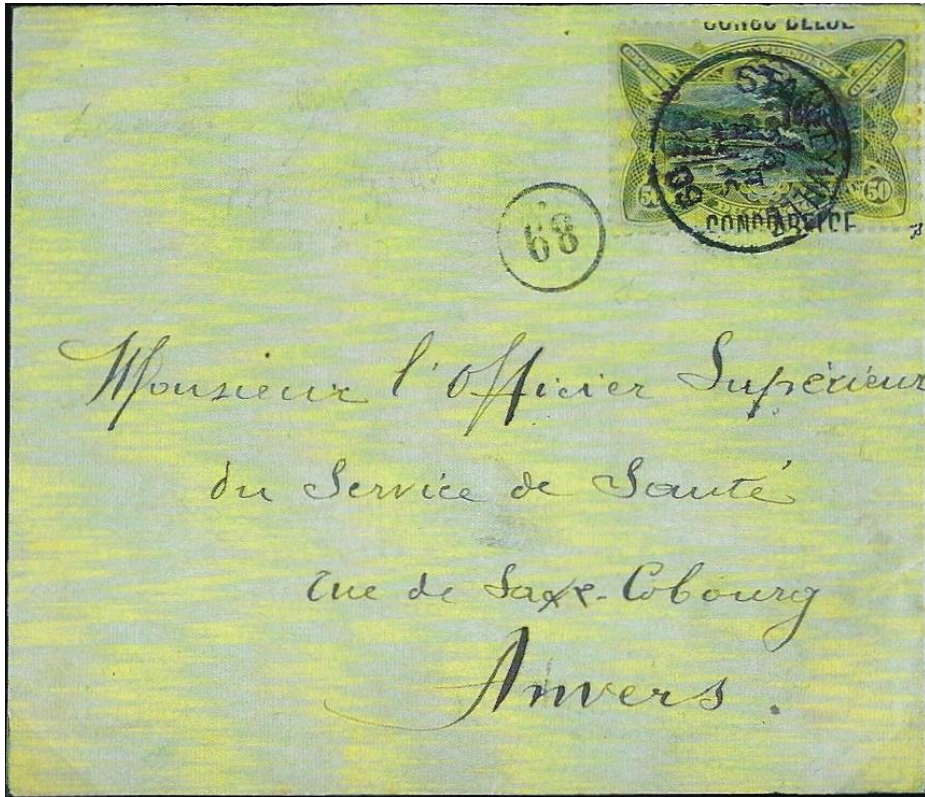 CONGO BELGE
50 50
CONGO BELGE
STANLEYVILLE
68
Monsieur l'Officier Supérieur
du Service de Santé
rue de Saxe-Cobourg
Anvers.